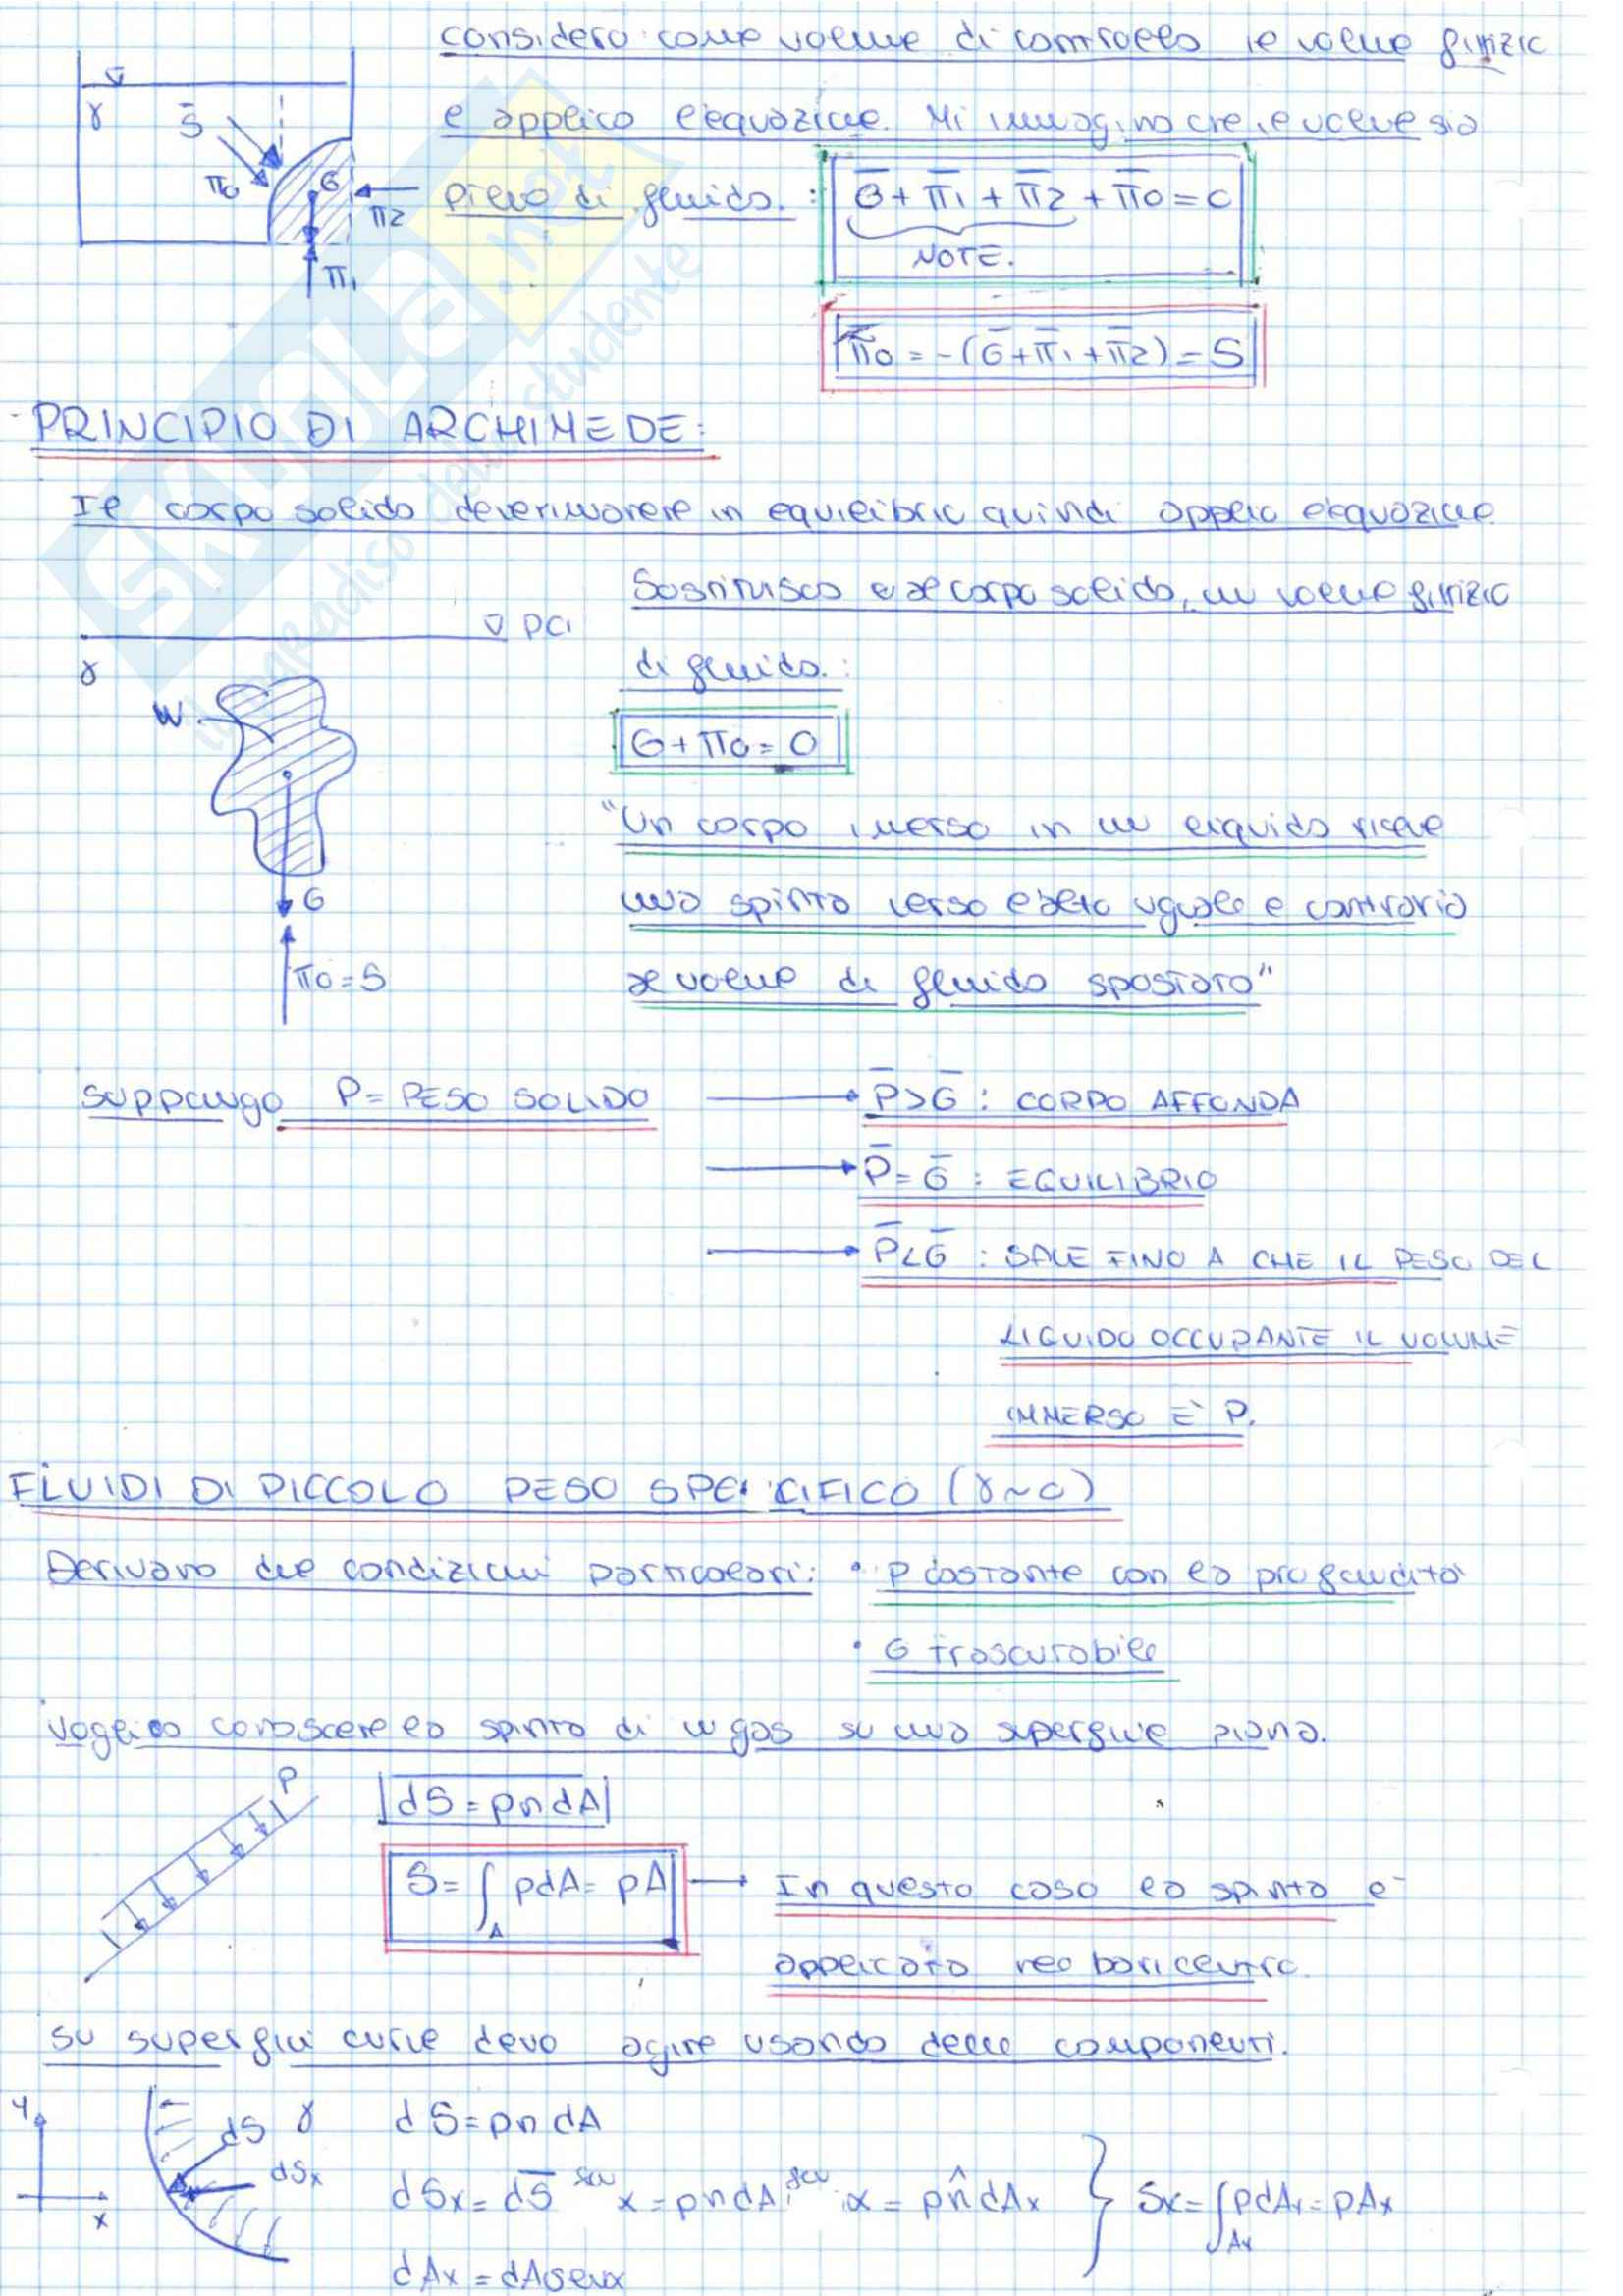 considero come volume di controllo il volume fittizio
e applico l'equazione. Mi immagino che il volume sia
pieno di fluido. : G̅ + π̅1 + π̅2 + π̅0 = 0
NOTE.
γ S̅ π0 G π2 π1
π̅0 = -(G̅ + π̅1 + π̅2) = S
- PRINCIPIO DI ARCHIMEDE:
Il corpo solido deve rimanere in equilibrio quindi applico l'equazione
Sostituisco al corpo solido, un volume fittizio
∇ pci
γ
di fluido. :
W
G + π0 = 0
"Un corpo imerso in un liquido riceve
G
una spinta verso l'alto uguale e contraria
π0 = S
al volume di fluido spostato"
suppongo P = PESO SOLIDO → P̅ > G̅ : CORPO AFFONDA
→ P̅ = G̅ : EQUILIBRIO
→ P̅ < G̅ : SALE FINO A CHE IL PESO DEL
LIQUIDO OCCUPANTE IL VOLUME
IMMERSO E' P.
FLUIDI DI PICCOLO PESO SPECIFICO (γ ~ 0)
Derivano due condizioni particolari: • p costante con la profondità
• G trascurabile
Voglio conoscere la spinta di un gas su una superficie piana.
P
dS = pndA
S = ∫A pdA = pA → In questo caso la spinta e'
applicata nel baricentro.
su superfici curve devo agire usando delle componenti.
y x dS γ dSx
dS = pn dA
dSx = dS̅ sen x = pndA sen α = pn̂ dAx } Sx = ∫Ax pdAx = pAx
dAx = dA senα
SKUOLA.net
il paradiso dello studente